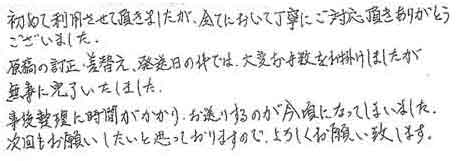 初めて利用させて頂きましたが、全てにおいて丁寧にご対応頂きありがとう
ございました。
原稿の訂正・差替え、発送日の件では、大変お手数をお掛けしましたが
無事に完了いたしました。
事後整理に時間がかかり、お送りするのが今頃になってしまいました。
次回もお願いしたいと思っておりますので、よろしくお願い致します。